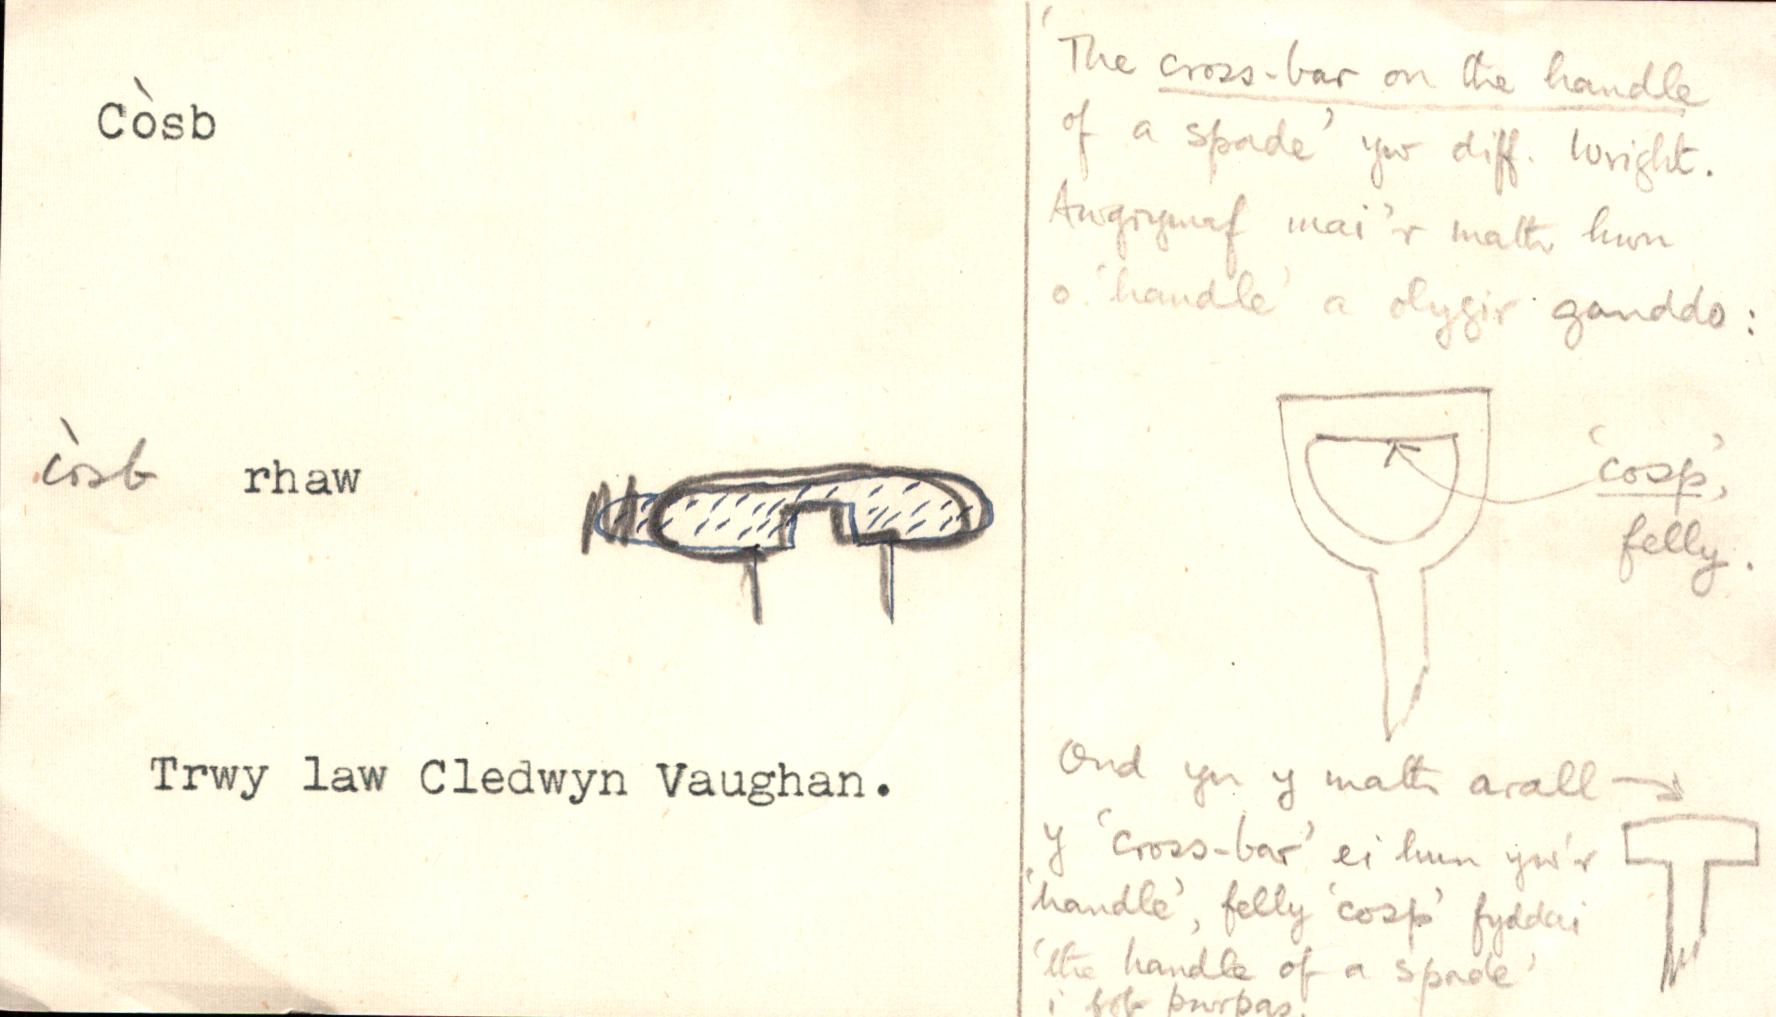 Còsb
còsb rhaw
Trwy law Cledwyn Vaughan.
'The cross-bar on the handle
of a spade' yw diff. Wright.
Awgrymaf mai'r math hwn
o 'handle' a olygir ganddo:
'cosp',
felly.
Ond yn y math arall →
y 'cross-bar' ei hun yw'r
'handle', felly 'cosp' fyddai
'the handle of a spade'
i bob pwrpas.